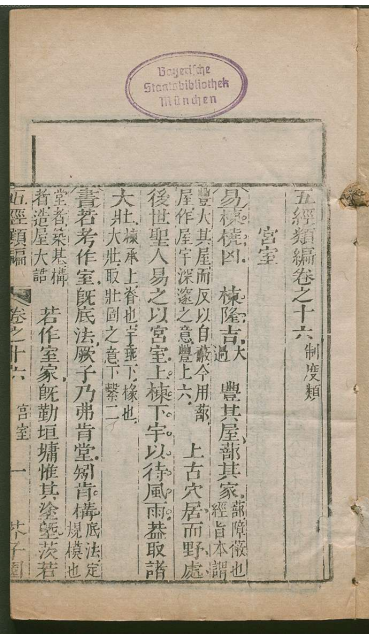 Bayerische
Staatsbibliothek
München
五經類編卷之十六 制度類
宮室
易棟橈凶 棟隆吉 大過 豐其屋蔀其家 蔀障蔽也經旨本謂
豐大其屋而反以自蔽今用蔀屋作屋宇深邃之意豐上六 上古穴居而野處
後世聖人易之以宮室上棟下宇以待風雨葢取諸
大壯 棟承上脊也宇垂下椽也大壯取壯固之意下繫二
書若考作室旣底法厥子乃弗肯堂矧肯構 底法定規模也
堂者築基構者造屋大誥 若作室家旣勤垣墉惟其塗塈茨若
五經類編 卷之十六 宮室 一 芥子園